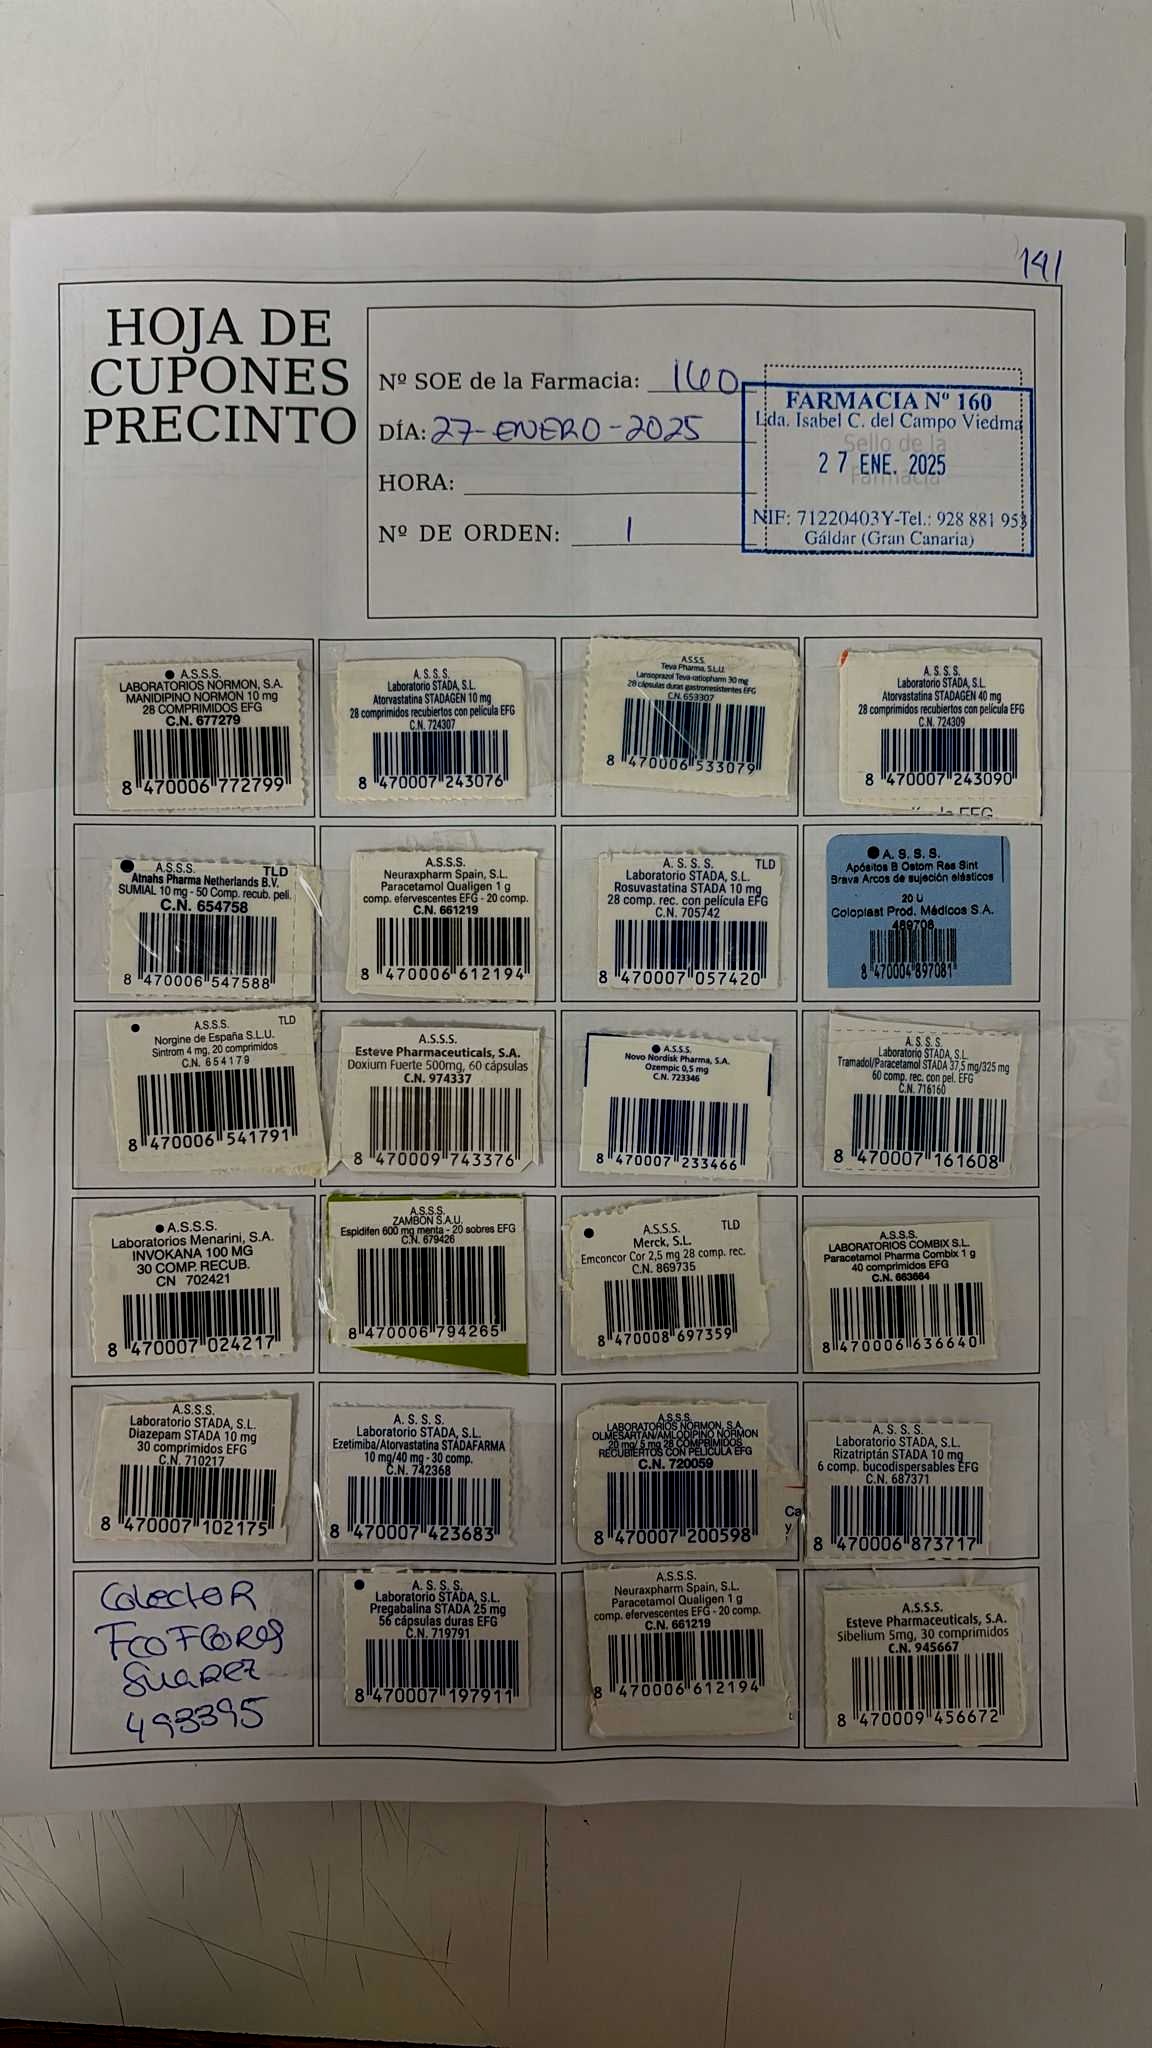 141
HOJA DE
CUPONES
PRECINTO
Nº SOE de la Farmacia: 160
DÍA: 27-ENERO-2025
HORA:
Nº DE ORDEN: 1
Sello de la
Farmacia
FARMACIA Nº 160
Lda. Isabel C. del Campo Viedma
27 ENE. 2025
NIF: 71220403Y-Tel.: 928 881 953
Gáldar (Gran Canaria)
A.S.S.S.
LABORATORIOS NORMON, S.A.
MANIDIPINO NORMON 10 mg
28 COMPRIMIDOS EFG
C.N. 677279
8 470006 772799
A. S. S. S.
Laboratorio STADA, S.L.
Atorvastatina STADAGEN 10 mg
28 comprimidos recubiertos con película EFG
C.N. 724307
8 470007 243076
A.S.S.S.
Teva Pharma, S.L.U.
Lansoprazol Teva-ratiopharm 30 mg
28 cápsulas duras gastrorresistentes EFG
C.N. 653307
8 470006 533079
A. S. S. S.
Laboratorio STADA, S.L.
Atorvastatina STADAGEN 40 mg
28 comprimidos recubiertos con película EFG
C.N. 724309
8 470007 243090
A.S.S.S. TLD
Atnahs Pharma Netherlands B.V.
SUMIAL 10 mg - 50 Comp. recub. pelí.
C.N. 654758
8 470006 547588
A.S.S.S.
Neuraxpharm Spain, S.L.
Paracetamol Qualigen 1 g
comp. efervescentes EFG - 20 comp.
C.N. 661219
8 470006 612194
A. S. S. S. TLD
Laboratorio STADA, S.L.
Rosuvastatina STADA 10 mg
28 comp. rec. con película EFG
C.N. 705742
8 470007 057420
A. S. S. S.
Apósitos B Ostom Res Sint
Brava Arcos de sujeción elásticos
20 U
Coloplast Prod. Médicos S.A.
489708
8 470004 897081
A.S.S.S. TLD
Norgine de España S.L.U.
Sintrom 4 mg, 20 comprimidos
C.N. 654179
8 470006 541791
A.S.S.S.
Esteve Pharmaceuticals, S.A.
Doxium Fuerte 500mg, 60 cápsulas
C.N. 974337
8 470009 743376
A.S.S.S.
Novo Nordisk Pharma, S.A.
Ozempic 0,5 mg
C.N. 723346
8 470007 233466
A. S. S. S.
Laboratorio STADA, S.L.
Tramadol/Paracetamol STADA 37,5 mg/325 mg
60 comp. rec. con pel. EFG
C.N. 716160
8 470007 161608
A.S.S.S.
Laboratorios Menarini, S.A.
INVOKANA 100 MG
30 COMP. RECUB.
CN 702421
8 470007 024217
A.S.S.S.
ZAMBON S.A.U.
Espidifen 600 mg menta - 20 sobres EFG
C.N. 679426
8 470006 794265
A.S.S.S. TLD
Merck, S.L.
Emconcor Cor 2,5 mg 28 comp. rec.
C.N. 869735
8 470008 697359
A.S.S.S.
LABORATORIOS COMBIX S.L.
Paracetamol Pharma Combix 1 g
40 comprimidos EFG
C.N. 663664
8 470006 636640
A.S.S.S.
Laboratorio STADA, S.L.
Diazepam STADA 10 mg
30 comprimidos EFG
C.N. 710217
8 470007 102175
A. S. S. S.
Laboratorio STADA, S.L.
Ezetimiba/Atorvastatina STADAFARMA
10 mg/40 mg - 30 comp.
C.N. 742368
8 470007 423683
A.S.S.S.
LABORATORIOS NORMON, S.A.
OLMESARTAN/AMLODIPINO NORMON
20 mg/ 5 mg 28 COMPRIMIDOS
RECUBIERTOS CON PELICULA EFG
C.N. 720059
8 470007 200598
Ca
y
A. S. S. S.
Laboratorio STADA, S.L.
Rizatriptán STADA 10 mg
6 comp. bucodispersables EFG
C.N. 687371
8 470006 873717
Colector
Fco Flores
Suarez
493395
A. S. S. S.
Laboratorio STADA, S.L.
Pregabalina STADA 25 mg
56 cápsulas duras EFG
C.N. 719791
8 470007 197911
A.S.S.S.
Neuraxpharm Spain, S.L.
Paracetamol Qualigen 1 g
comp. efervescentes EFG - 20 comp.
C.N. 661219
8 470006 612194
A.S.S.S.
Esteve Pharmaceuticals, S.A.
Sibelium 5mg, 30 comprimidos
C.N. 945667
8 470009 456672